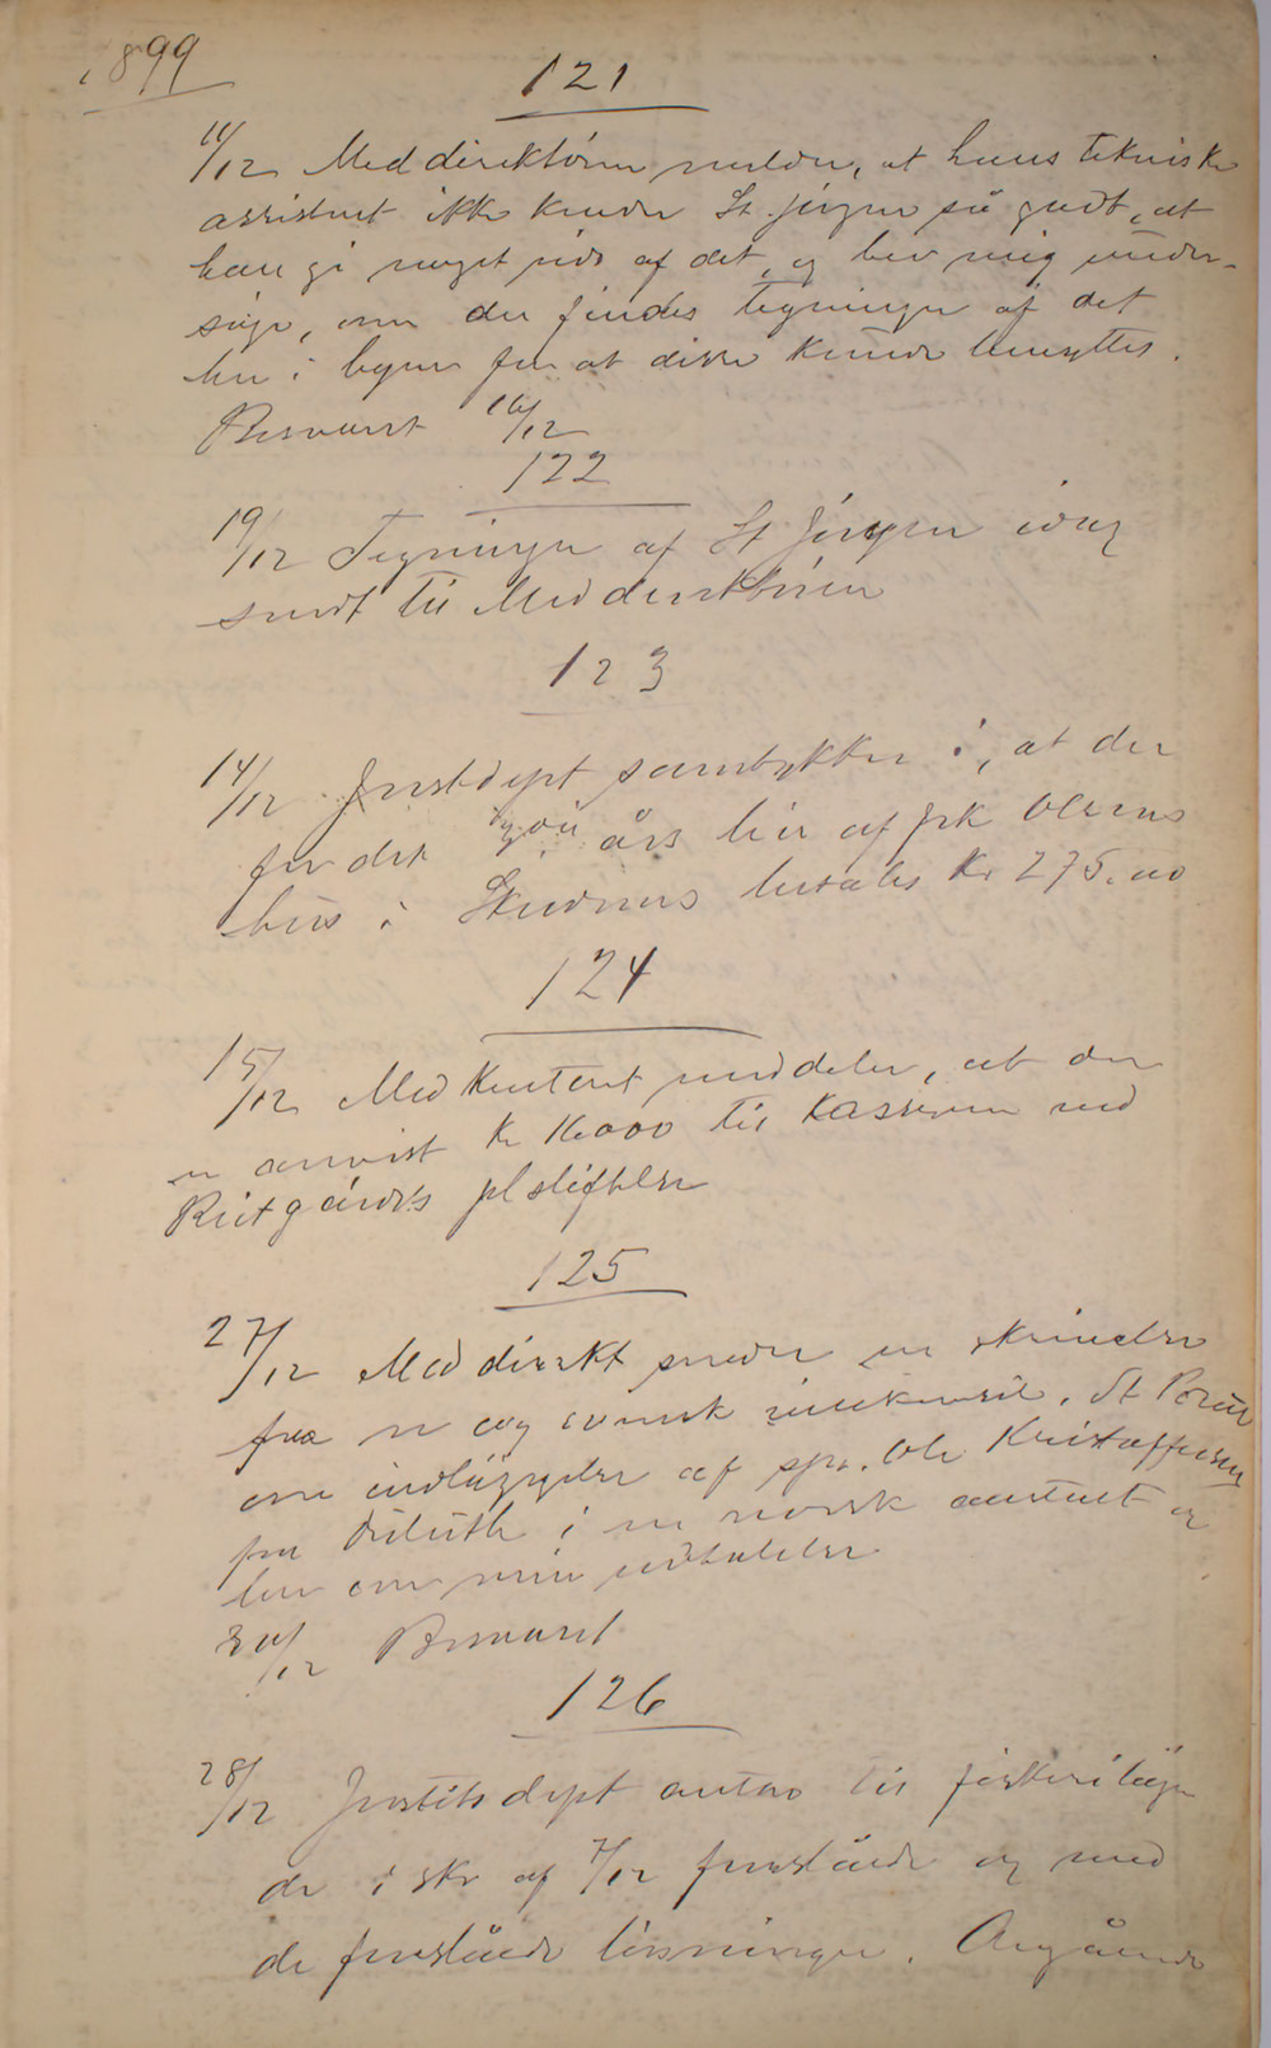 1899
121
11/12 Meddirektøren melder, at hans tekniske
assistent ikke kender St. Jørgen så godt, at
han gi noget rids af det, og bev mig under-
søge, om der findes tegninger af det
her i byen for at disse kunde benyttes.
Besvaret 16/12
122
19/12 Tegninger af St Jørgen idag
sendt til Meddirektøren
123
14/12 Justdept samtykker i, at der
for det års leie af frk Olsens
hus i Skudnes betales Kr 275.00
124
15/12 Medkontoret meddeler, at der
er anvist Kr 16000 til kassereren ved
Reitgjærdets plstiftelse
125
27/12 Meddirekt sender en skrivelse
fra n og svensk vicekonsul. St Paul
om indlæggelse af sps. Ole Kristoffersen
fra Duluth i en norsk anstalt og
ber om min udtalelse
30/12 Besvaret
126
28/12 Justitsdept antar til fiskerilæger
de i skr af 7/12 foreslåede og med
de foreslåede lønninger. Angående